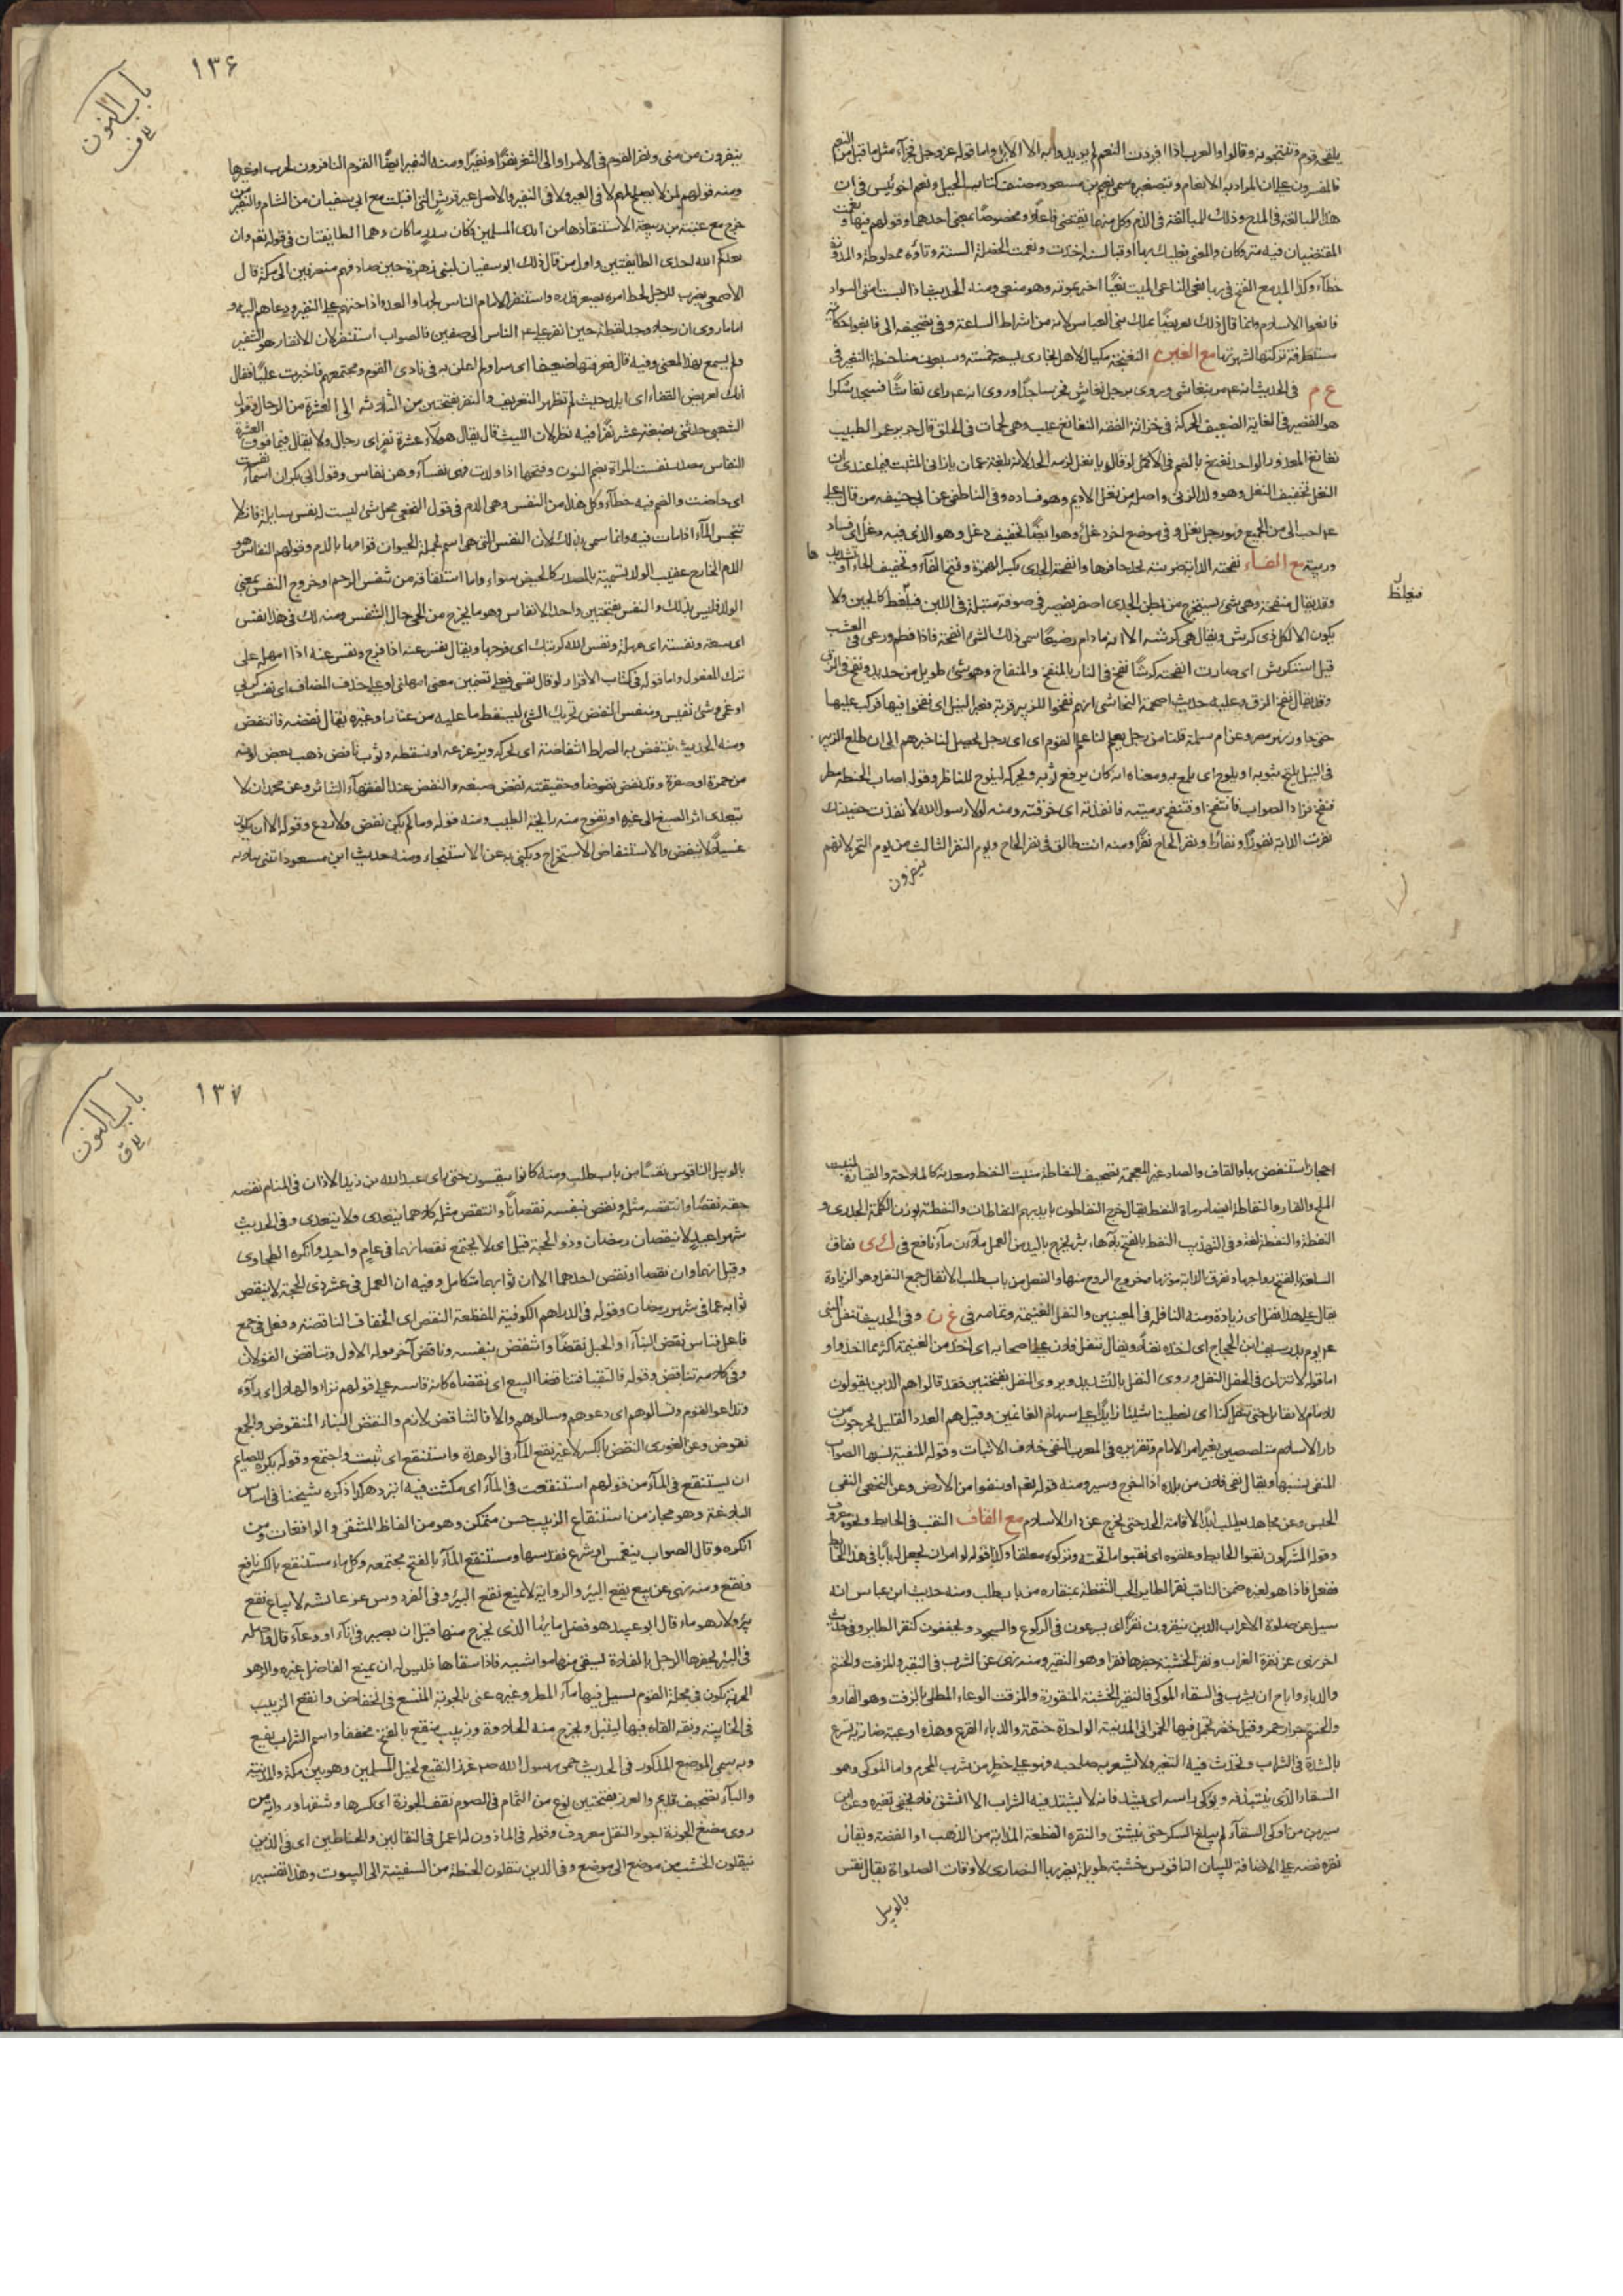 يلقحه قوم وينتجونه وقالوا والعرب اذا افردت النعم لم يريدوا به الا الابل واما قوله عز وجل فجزآء مثل ما قتل من النعم
فالمفسرون على ان المراد به الانعام وبتصغيره سمى نعيم بن مسعود مصنف كتاب الحيل ونعم اخو بئس فى ان
هذا للمبالغة فى المدح وذلك للمبالغة فى الذم وكل منهما يقتضى فاعلا ومخصوصا بمعنى احدهما وقولهم فبها ونعمت
المقتضيان فيه متروكان والمعنى فعليك بها او فبالسنة اخذت ونعمت الخصلة السنة وتاؤه ممطوطة والمدورة
خطأ وكذا المد مع الفتح فى بها نعى الناعى الميت نعيا اخبر بموته وهو منعى ومنه الحديث اذا البست امتى السواد
فانعوا الاسلام وانما قال ذلك تعريضا بملك بنى العباس لانه من اشراط الساعة وفى تصحيفه الى فابغوا حكاية
مستطرفة تركتها لشهرتها مع الغين النغنجة مكيال لاهل بخارى يسع خمسة وسبعين منا حنطة النغير فى
ع م فى الحديث انه عم مر بنغاشى وروى برجل نغاش فخر ساجدا وروى انه عم راى نغاشا فسجد شكرا
هو القصير فى الغاية الضعيف الحركة فى خزانة الفقه النغانغ عيب وهى لحمات فى الحلق قال جرير غمز الطبيب
نغانغ المعذور الواحد نغنغ بالضم فى الاكمل لو قال يا نغل لزمه الحد لانه بلغة عمان يا زانى المثبت فيما عندى ان
النغل تخفيف النغل وهو ولد الزنى واصله من نغل الاديم وهو فساده وفى الناطفى عن ابى حنيفه من قال
وريبة مع الفاء نفحته الدابة ضربته بحد حافرها وانفحة الجدى بكسر الهمزة وفتح الفآء وتخفيف الحاء او تشديدها
وقد يقال منفحة وهى شئ يستخرج من بطن الجدى اصفر يعصر فى صوفة مبتلة فى اللبن فيغلظ كالجبن ولا
يكون الا لكل ذى كرش ويقال هى كرشه الا انه ما دام رضيعا سمى ذلك الشئ انفحة فاذا فطم ورعى فى العشب
قيل استكرش اى صارت انفحته كرشا نفخ فى النار بالمنفخ والمنفاخ وهو شئ طويل من حديد ونفخ فى الزق
وقد يقال نفخ الزق وعليه حديث اصحمة النجاشى انهم نفخوا للزبير قربة فعبر النيل اى نفخوا فيها فركب عليها
حتى جاوز نهر مصر وعن ام سلمة قلنا من رجل يعلم لنا علم القوم اى اى رجل يحصل لنا خبرهم الى ان طلع الزبير
فى النيل يليح بثوبه او يلوح اى يلمع به ومعناه انه كان يرفع ثوبه ويحركه ليلوح للناظر وقوله اصاب الحنطة مطر
فنفخ فزاد الصواب فانتفخ او فتنفخ رميته فانفذته اى خرقته ومنه لولا رسول الله لانفذت حضنيك
نفرت الدابة نفورا ونفارا ونفر الحاج نفرا ومنه انت طالق فى نفر الحاج ويوم النفر الثالث من يوم النحر لانهم
ينفرون
فيغلظ
١٣٦
باب النون
ينفرون من منى ونفر القوم فى الامر او الى الثغر نفرا ونفيرا ومنه النفير ايضا القوم النافرون لحرب او غيرها
ومنه قولهم لمن لا يصلح لمهم لا فى العير ولا فى النفير والاصل عير قريش التى اقبلت مع ابى سفيان من الشام والنفير من
خرج مع عتبة بن ربيعة لاستنقاذها من ايدى المسلمين فكان ببدر ما كان وهما الطايفتان فى قوله تعم وان
يعدكم الله احدى الطايفتين واول من قال ذلك ابو سفيان لبنى زهرة حين صادفهم منصرفين الى مكة قال
الاصمعى يضرب للرجل يحط امره يصغر قدره واستنفر الامام الناس لجهاد العدو اذا حثهم على النفير ودعاهم اليه و
اما ما روى ان رجلا وجد لقطة حين انفر على عم الناس الى صفين فالصواب استنفر لان الانفار هو التنفير
ولم يسمع بهذا المعنى وفيه قال فعرفتها ضعيفا اى سرا ولم اعلن به فى نادى القوم ومجتمعهم فاخبرت عليا فقال
انك لعريض القفاء اى ابله حيث لم تظهر التعريف والنفر بفتحتين من الثلاثة الى العشرة من الرجال وقول
الشعبى حدثنى بضعة عشر نفرا فيه نظر لان الليث قال يقال هولآء عشرة نفر اى رجال ولا يقال فيما فوق العشرة
النفاس مصدر نفست المراة بضم النون وفتحها اذا ولدت فهى نفسآء وهن نفاس وقول ابى بكر ان اسمآء نفست
اى حاضت والضم فيه خطآء وكل هذا من النفس وهى الدم فى قول النخعى كل شئ ليست له نفس سايلة فانه لا
ينجس المآء اذا مات فيه وانما سمى بذلك لان النفس التى هى اسم لجملة الحيوان قوامها بالدم وقولهم النفاس هو
الدم الخارج عقيب الولد تسمية بالمصدر كالحيض سواء واما اشتقاقه من تنفس الرحم او خروج النفس بمعنى
الولد فليس بذلك والنفس بفتحتين واحد الانفاس وهو ما يخرج من الحى حال التنفس ومنه لك فى هذا نفس
اى سعة ونفسة اى مهلة ونفس الله كربتك اى فرجها ويقال نفس عنه اذا فرج ونفس عنه اذا امهله على
ترك المفعول واما قوله فى كتاب الاقرار لو قال نفسى فعلى تضمين معنى امهلنى او على حذف المضاف اى نفس كربى
او غمى وشئ نفيس ومنفس النفض تحريك الشئ ليسقط ما عليه من غبار او غيره يقال نفضه فانتفض
ومنه الحديث ينتفض به الصراط انتفاضة اى يحركه ويزعزعه او يسقطه وثوب نافض ذهب بعض لونه
من حمرة او صفرة وقد نفض نفوضا وحقيقته نفض صبغه والنفض عند الفقهآء التناثر وعن محمد ان لا
يتعدى اثر الصبغ الى غيره او تفوح منه رايحة الطيب ومنه قوله وما لم يكن نفض ولا ردع وقوله الا ان يكون
غسيلا لا ينفض والاستنفاض الاستخراج ويكنى به عن الاستنجاء ومنه حديث ابن مسعود ائتنى بثلاثة
احجار استنفض بها والقاف والصاد غير المعجمة تصحيف النفاطة منبت النفط ومعدنه كالملاحة والقيارة لمنبت
الملح والقار والنفاطة ايضا مرماة النفط يقال خرج النفاطون بايديهم النفاطات والنفطة بوزن الكلمة الجدرى و
النفطة والنفطة لغة وفى التهذيب النفط بالفتح بلا هاء بثر يخرج باليد من العمل ملآن مآء نافع فى ك ى نفاق
السلعة بالفتح رواجها ونفوق الدابة موتها وخروج الروح منها والفعل من باب طلب الانفال جمع النفل وهو الزيادة
يقال على هذا نفل اى زيادة ومنه النافلة فى المعنيين والنفل الغنيمة وتمامه فى غ ن وفى الحديث تنفل النبى
عم يوم بدر سيف ابن الحجاج اى اخذه نفلا ويقال تنفل فلان على اصحابه اى اخذ من الغنيمة اكثر مما اخذوا و
للامام لا نقاتل حتى تنفل كذا اى تعطينا شيئا زايدا على سهام الغانمين وقيل هم العدد القليل يخرجون من
دار الاسلام متلصصين بغير امر الامام وتقريره فى المعرب النفى خلاف الاثبات وقوله المنفية نسبها الصواب
المنفى نسبها ويقال نفى فلان من بلده اذا اخرج وسير ومنه قوله تعم او ينفوا من الارض وعن النخعى النفى
الحبس وعن مجاهد يطلب ابدا لاقامة الحد حتى يخرج عن دار الاسلام مع القاف النقب فى الحايط ونحوه معروف
وقوله المشركون نقبوا الحايط وعلقوه اى نقبوا ما تحته وتركوه معلقا وكذا قوله لو امر ان يجعل له بابا فى هذا الحايط
ففعل فاذا هو لغيره ضمن الناقب نقر الطاير الحب التقطه بمنقاره من باب طلب ومنه حديث ابن عباس انه
سيل عن صلوة الاعراب الذين ينقرون نقرا اى يسرعون فى الركوع والسجود ويخففون كنقر الطاير وفى حديث
اخر نهى عن نقرة الغراب ونقر الخشبة حفرها نقرا وهو النقير ومنه نهى عن الشرب فى النقير والمزفت والحنتم
والدباء واباح ان يشرب فى السقاء الموكى فالنقير الخشبة المنقورة والمزفت الوعاء المطلى بالزفت وهو القار و
والحنتم جرار حمر وقيل خضر تحمل فيها الخمر الى المدينة الواحدة حنتمة والدباء القرع وهذه اوعية ضارية تسرع
بالشدة فى الشراب وتحدث فيه التغير ولا يشعر به صاحبه فهو على خطر من شرب المحرم واما الموكى وهو
السقاء الذى ينتبذ فيه ويوكى راسه اى يشد فانه لا يشتد فيه الشراب الا انشق فلا يخفى تغيره وعن ابن
سيرين من اوكى السقآء لم يبلغ السكر حتى ينشق والنقره القطعة المذابة من الذهب او الفضة ويقال
نقره فضه على الاضافة للبيان الناقوس خشبة طويلة يضربها النصارى لاوقات الصلواة يقال نقس
بالوبيل
١٣٧
باب النون
بالوبيل الناقوس نقسا من باب طلب ومنه كانوا ينقسون حتى راى عبد الله بن زيد الاذان فى المنام نقصه
حقه نقصا وانتقصه مثله ونقص بنفسه نقصانا وانتقص مثله كلاهما يتعدى ولا يتعدى وفى الحديث
شهرا عيد لا ينقصان رمضان وذو الحجة قيل اى لا يجتمع نقصانهما فى عام واحد وانكره الطحاوى
وقيل انهما وان نقصا او نقص احدهما الا ان ثوابهما متكامل وفيه ان العمل فى عشر ذى الحجة لا ينقص
ثوابه عما فى شهر رمضان وقوله فى الدراهم الكوفية المقطعة النقص اى الخفاف الناقصة وفعل فى جمع
فاعل قياس نقض البنآء او الحبل نقضا وانتقض بنفسه وناقض آخر قوله الاول وتناقض القولان
وفى كلامه تناقض وقوله فالتقيا فتناقضا البيع اى نقضاه كانه قاسه على قولهم تراءوا الهلال اى راوه
وتداعوا القوم وتسالوهم اى دعوهم وسالوهم والا فالتناقض لازم والنقض البناء المنقوض والجمع
نقوض وعن الغورى النقض بالكسر لا غير نقع المآء فى الوهدة واستنقع اى ثبت واجتمع وقوله يكره للصايم
ان يستنقع فى المآء من قولهم استنقعت فى المآء اى مكثت فيه اتبرد هكذا ذكره شيخنا فى اساس
البلاغة وهو مجاز من استنقاع الزبيب حسن متمكن وهو من الفاظ المنتقى والواقعات ومن
انكره وقال الصواب ينغمس او يشرع فقد سها ومستنقع المآء بالفتح مجتمعه وكل ماء مستنقع بالكسر نافع
ونقع ومنه نهى عن بيع نقع البير والرواية لا يمنع نقع البير وفى الفردوس عن عايشه لا يباع نقع
بير ولا رهو ماء قال ابو عبيد هو فضل مايها الذى يخرج منها قبل ان يصير فى انآء او وعآء قال واصله
فى البئر يحفرها الرجل بالفلاة ليسقى منها مواشيه فاذا سقاها فليس له ان يمنع الفاضل غيره والرهو
الجوبة تكون فى محلة القوم يسيل فيها مآء المطر وغيره عنى بالجوبة المتسع فى انخفاض وانقع الزبيب
فى الخابية ونقعه القاه فيها ليبتل ويخرج منه الحلاوة وزبيب منقع بالفتح مخففا واسم الشراب نقيع
وبه سمى الموضع المذكور فى الحديث حمى رسول الله صم غرز النقيع لخيل المسلمين وهو بين مكة والمدينة
والبآء تصحيف قديم والغرز بفتحتين نوع من الثمام فى الصوم نقف الجوزة اى كسرها وشقها ورواية من
روى مضغ الجوزة اجود النقل معروف وقوله فى الماذون له اعمل فى النقالين والحناطين اى فى الذين
ينقلون الخشب من موضع الى موضع وفى الذين ينقلون الحنطة من السفينة الى البيوت وهذا تفسير